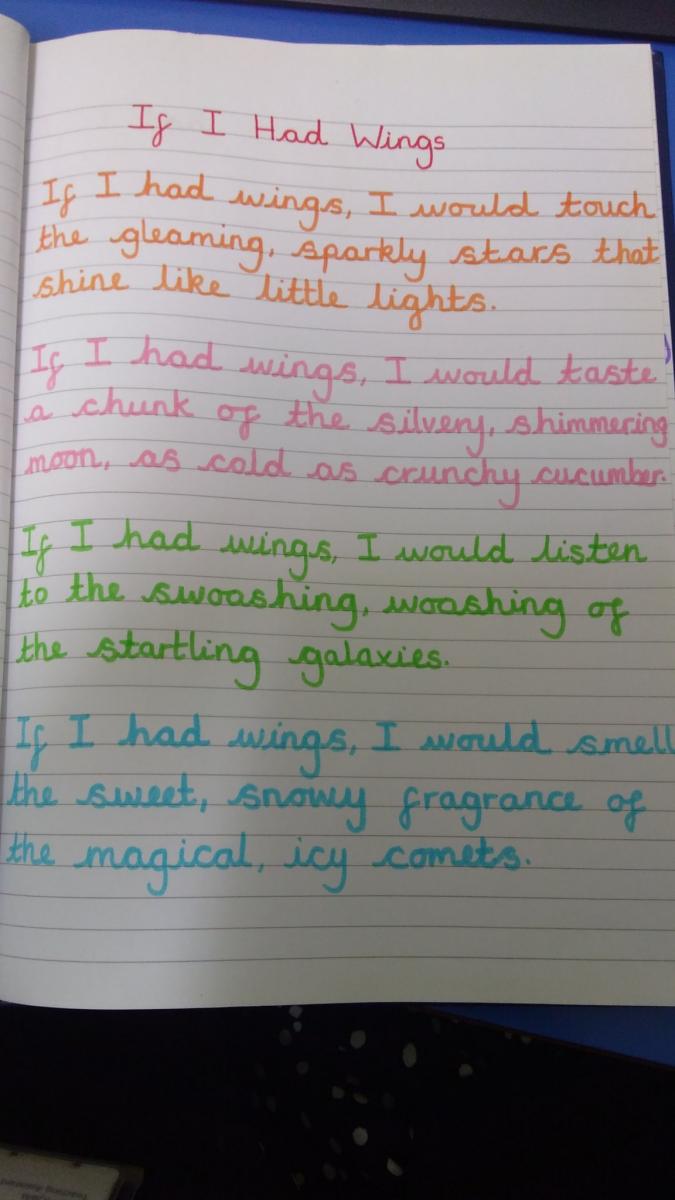 If I Had Wings
If I had wings, I would touch
the gleaming, sparkly stars that
shine like little lights.
If I had wings, I would taste
a chunk of the silvery, shimmering
moon, as cold as crunchy cucumber.
If I had wings, I would listen
to the swoashing, woashing of
the startling galaxies.
If I had wings, I would smell
the sweet, snowy fragrance of
the magical, icy comets.